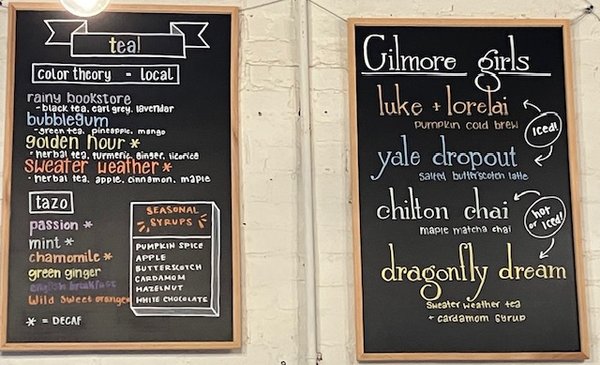 tea!
color theory = local
rainy bookstore
- black tea, earl grey, lavender
bubblegum
- green tea, pineapple, mango
golden hour *
- herbal tea, turmeric, ginger, licorice
sweater weather *
- herbal tea, apple, cinnamon, maple
tazo
passion *
mint *
chamomile *
green ginger
english breakfast
wild sweet orange
* = DECAF
SEASONAL
SYRUPS
PUMPKIN SPICE
APPLE
BUTTERSCOTCH
CARDAMOM
HAZELNUT
WHITE CHOCOLATE
Gilmore girls
luke + lorelai
pumpkin cold brew
iced!
yale dropout
salted butterscotch latte
chilton chai
maple matcha chai
hot or iced!
dragonfly dream
sweater weather tea
+ cardamom syrup